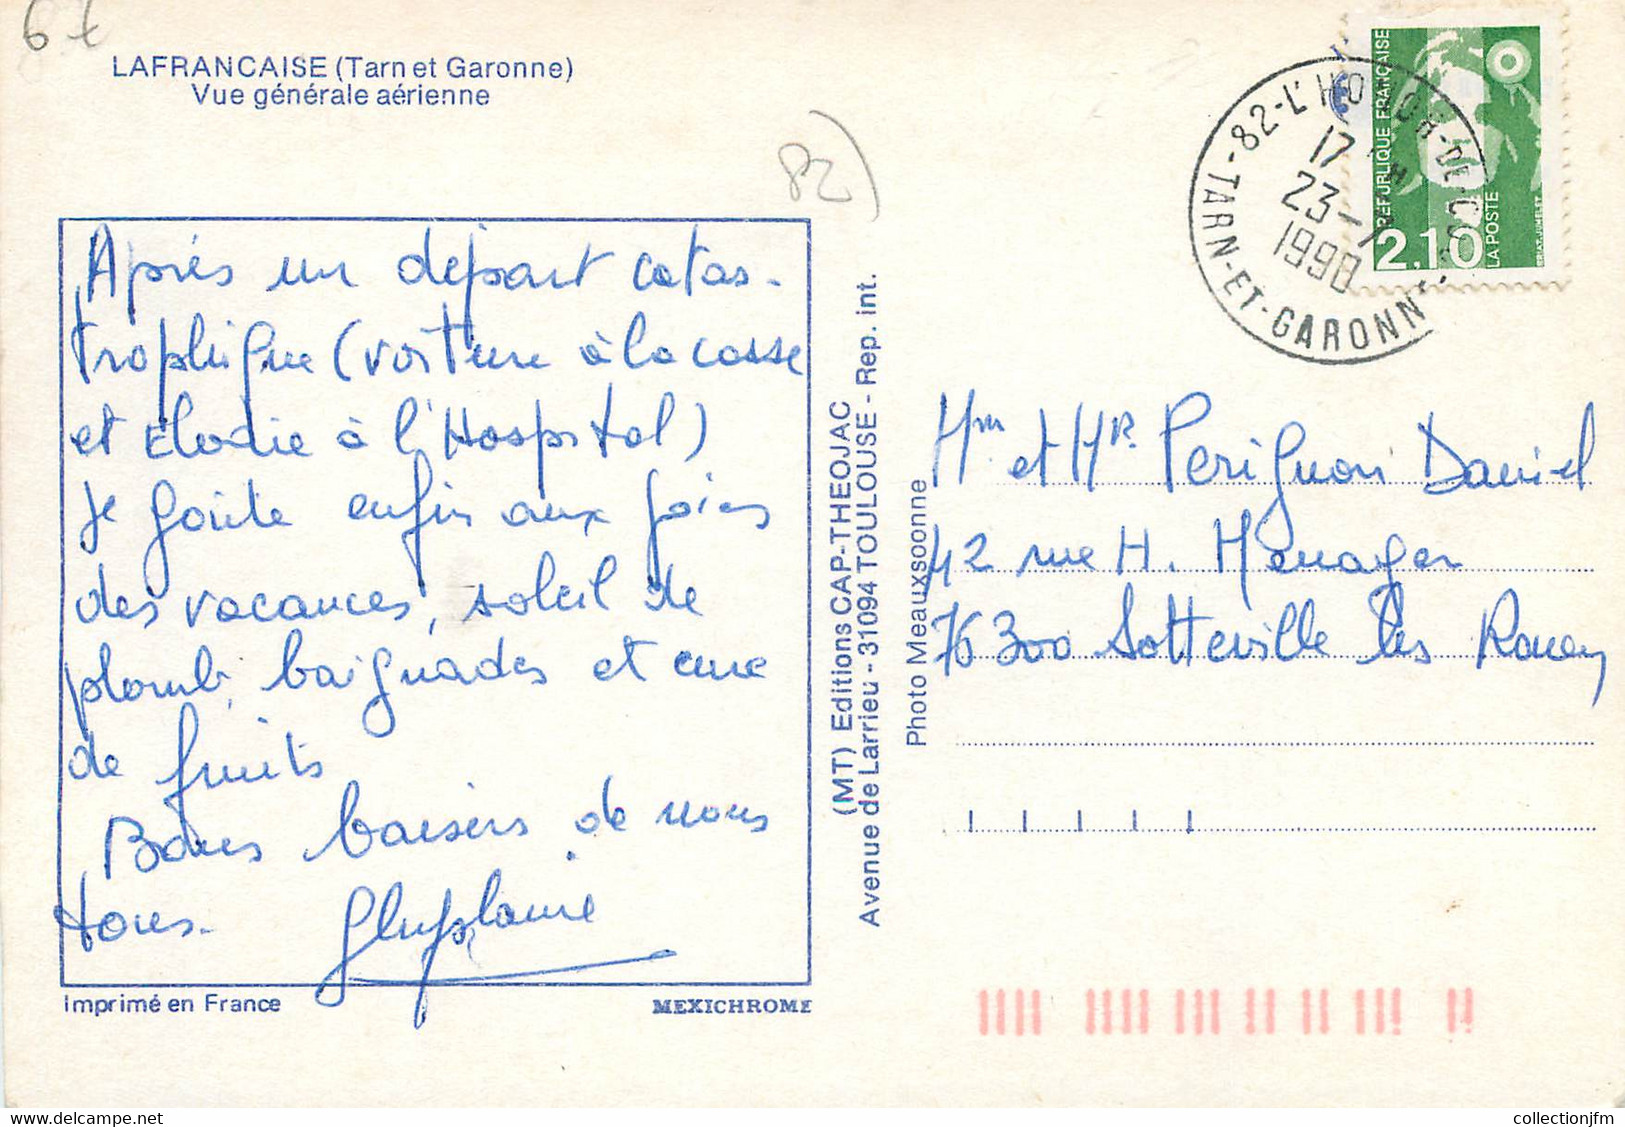 67
LAFRANCAISE (Tarn et Garonne)
Vue générale aérienne
82)
Après un départ catas-
trophique (voiture à la casse
et Elodie à l'Hospital)
je goûte enfin aux joies
des vacances, soleil de
plomb, baignades et cure
de fruits
Bones baisers de nous
tous.
Ghyslaine
Imprimé en France
MEXICHROME
(MT) Editions CAP-THEOJAC
Avenue de Larrieu - 31094 TOULOUSE - Rep. int.
Photo Meauxsoonne
82-L'HONOR-DE-COS
TARN-ET-GARONNE
17 H
23-7
1990
REPUBLIQUE FRANÇAISE
2,10
LA POSTE
Mm et Mr Perignon Daniel
42 rue H. Menager
76300 Sotteville les Rouen
collectionjfm